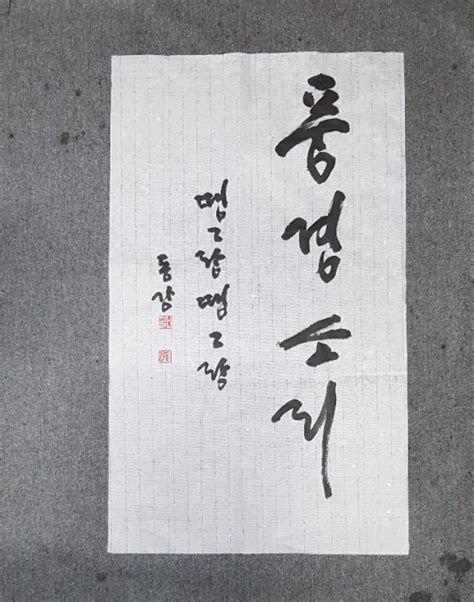 풍경소리
땡그랑땡그랑
동강